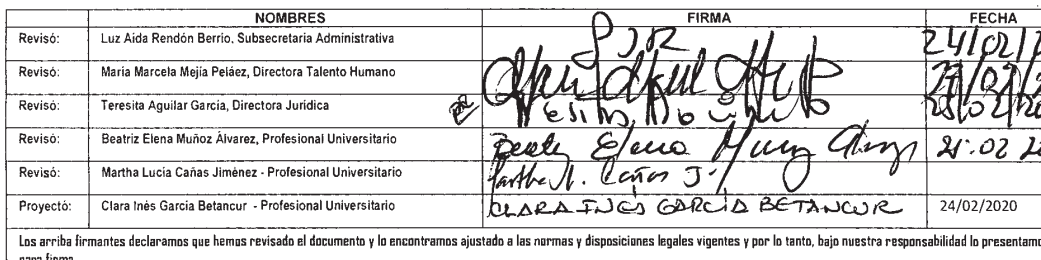 NOMBRES FIRMA FECHA
Revisó: Luz Aida Rendón Berrio, Subsecretaria Administrativa 24/02/
Revisó: María Marcela Mejía Peláez, Directora Talento Humano
Revisó: Teresita Aguilar García, Directora Jurídica
Revisó: Beatriz Elena Muñoz Álvarez, Profesional Universitario Elena
Revisó: Martha Lucía Cañas Jiménez - Profesional Universitario Cañas J.
Proyectó: Clara Inés García Betancur - Profesional Universitario CLARA INES GARCIA BETANCUR 24/02/2020
Los arriba firmantes declaramos que hemos revisado el documento y lo encontramos ajustado a las normas y disposiciones legales vigentes y por lo tanto, bajo nuestra responsabilidad lo presentamo
para firma